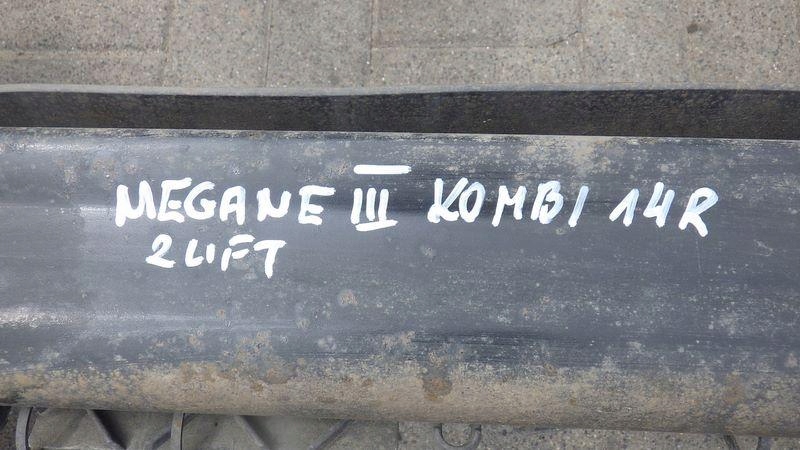 MEGANE III KOMBI 14R
2 LIFT